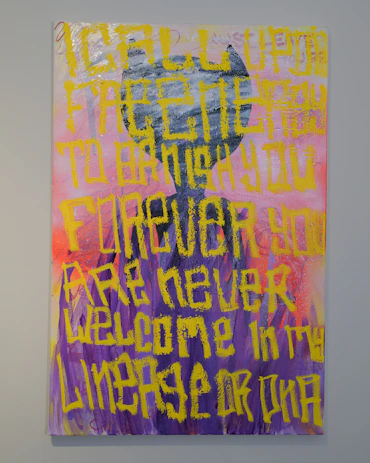 I CALL UPON
TO BANISH YOU
FOREVER YOU
ARE NEVER
WELCOME IN MY
LINEAGE OR DNA